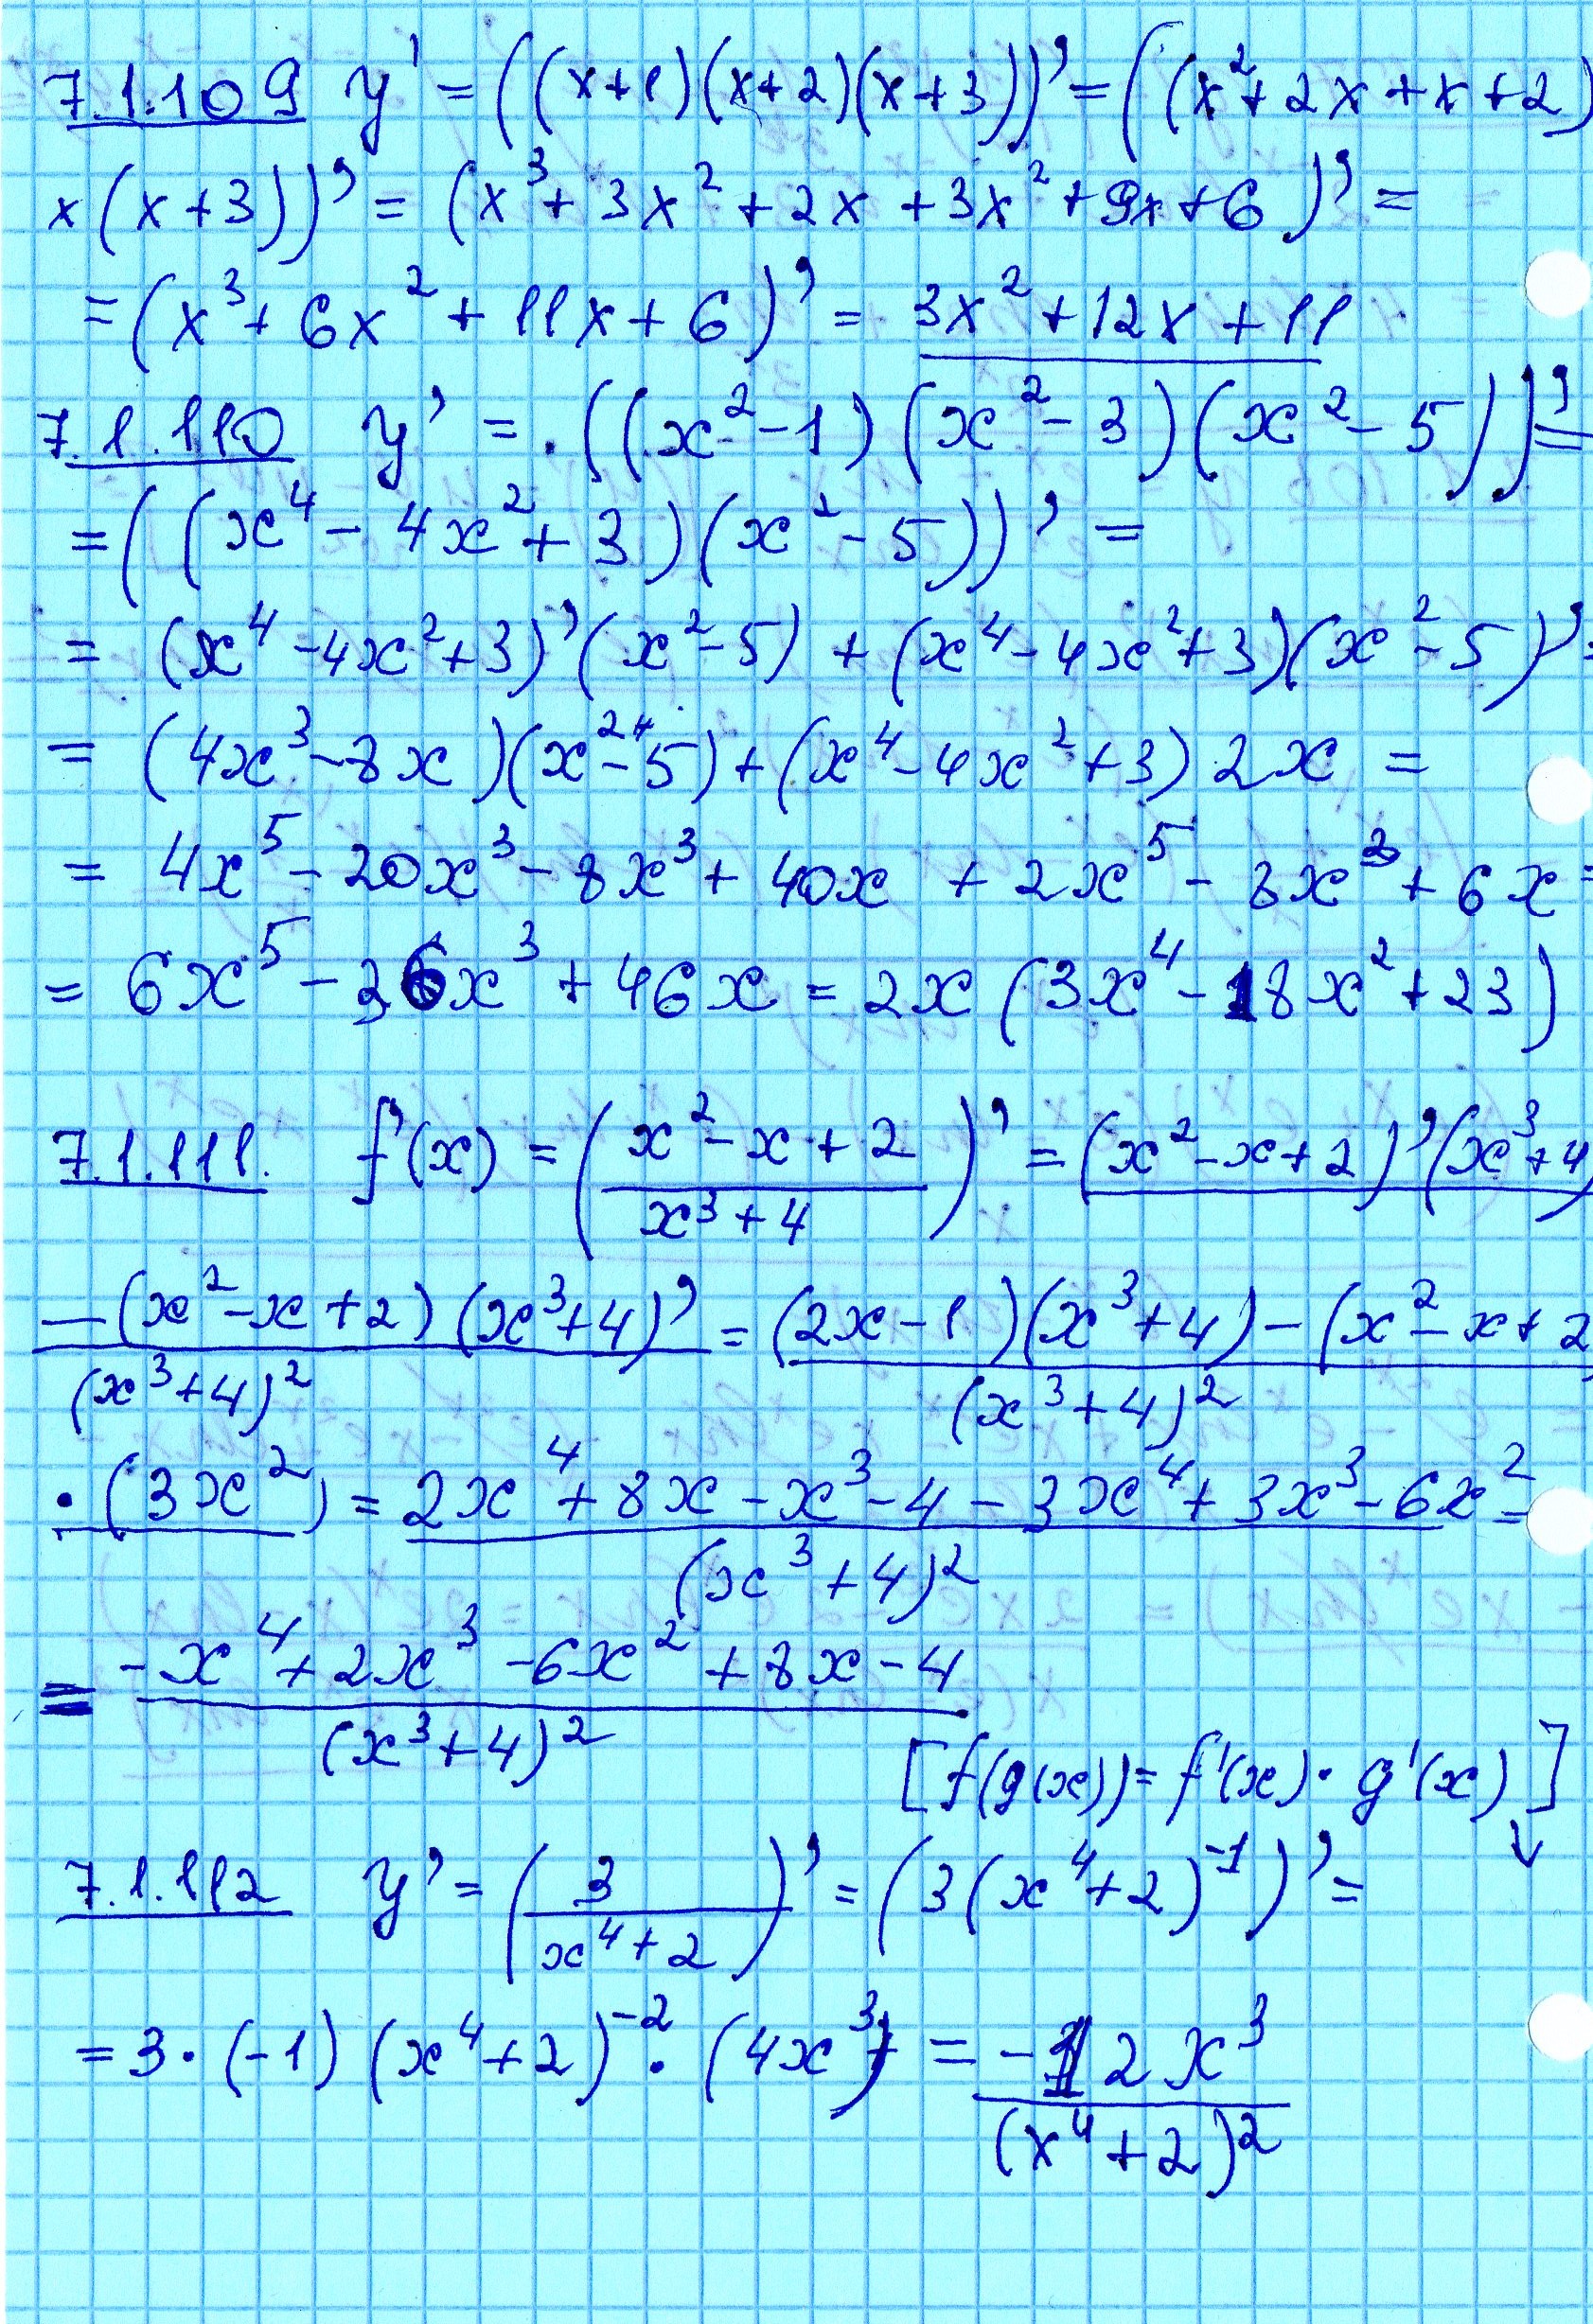 7.1.109 y' = ((x+1)(x+2)(x+3))' = ((x²+2x+x+2)
x(x+3))' = (x³+3x²+2x+3x²+9x+6)' =
= (x³+6x²+11x+6)' = 3x²+12x+11
7.1.110 y' = ((x²-1)(x²-3)(x²-5))' =
= ((x⁴-4x²+3)(x²-5))' =
= (x⁴-4x²+3)'(x²-5) + (x⁴-4x²+3)(x²-5)' =
= (4x³-8x)(x²-5)+(x⁴-4x²+3)2x =
= 4x⁵-20x³-8x³+40x+2x⁵-8x³+6x =
= 6x⁵-36x³+46x = 2x(3x⁴-18x²+23)
7.1.111. f'(x) = ((x²-x+2)/(x³+4))' = (x²-x+2)'(x³+4)
-(x²-x+2)(x³+4)' / (x³+4)² = (2x-1)(x³+4)-(x²-x+2) / (x³+4)²
·(3x²) = (2x⁴+8x-x³-4-3x⁴+3x³-6x²) / (x³+4)² =
= (-x⁴+2x³-6x²+8x-4) / (x³+4)²
[f(g(x))=f'(x)·g'(x)]
7.1.112 y' = (3/(x⁴+2))' = (3(x⁴+2)⁻¹)' =
= 3·(-1)(x⁴+2)⁻²·(4x³) = -12x³/(x⁴+2)²